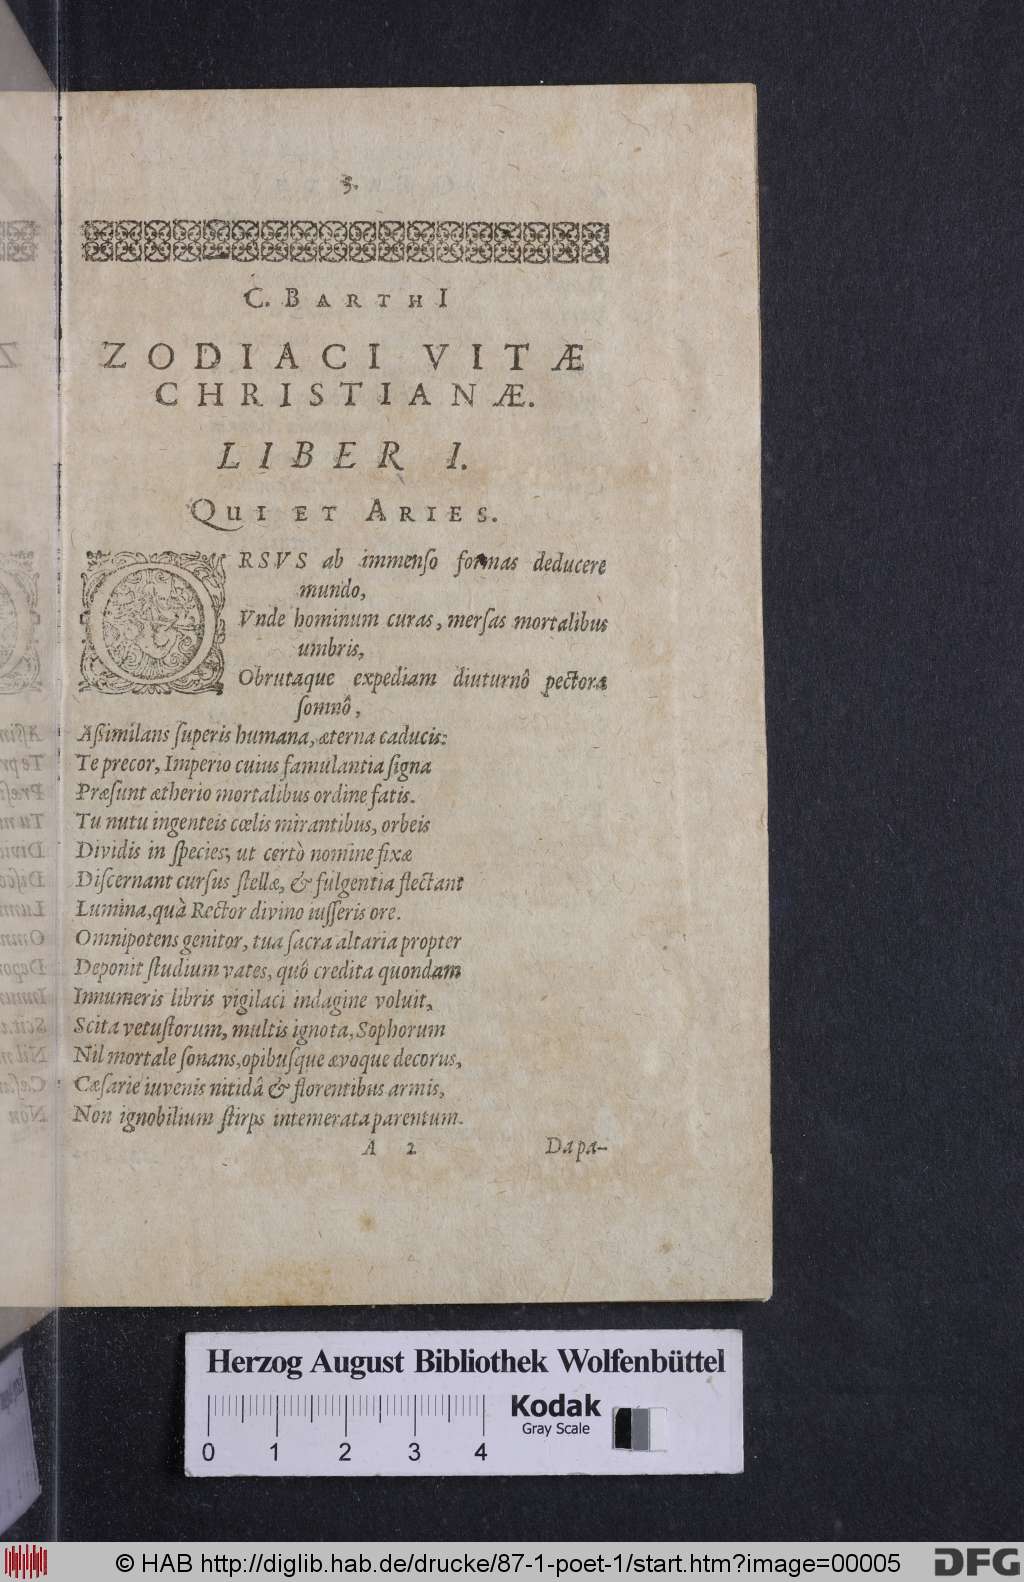 3.
C. BARTHI
ZODIACI VITÆ
CHRISTIANÆ.
LIBER I.
QUI ET ARIES.
ORSVS ab immenſo formas deducere
mundo,
Vnde hominum curas, merſas mortalibus
umbris,
Obrutaque expediam diuturnô pectora
ſomnô,
Aſſimilans ſuperis humana, æterna caducis:
Te precor, Imperio cuius famulantia ſigna
Præſunt ætherio mortalibus ordine fatis.
Tu nutu ingenteis cœlis mirantibus, orbeis
Dividis in ſpecies; ut certò nomine fixæ
Diſcernant curſus ſtellæ, & fulgentia flectant
Lumina, quà Rector divino iuſſeris ore.
Omnipotens genitor, tua ſacra altaria propter
Deponit ſtudium vates, quô credita quondam
Innumeris libris vigilaci indagine voluit,
Scita vetuſtorum, multis ignota, Sophorum
Nil mortale ſonans, opibuſque ævoque decorus,
Cæſarie iuvenis nitidâ & florentibus armis,
Non ignobilium ſtirps intemerata parentum.
A 2 Da pa-
Herzog August Bibliothek Wolfenbüttel
Kodak
Gray Scale
0 1 2 3 4
© HAB http://diglib.hab.de/drucke/87-1-poet-1/start.htm?image=00005
DFG